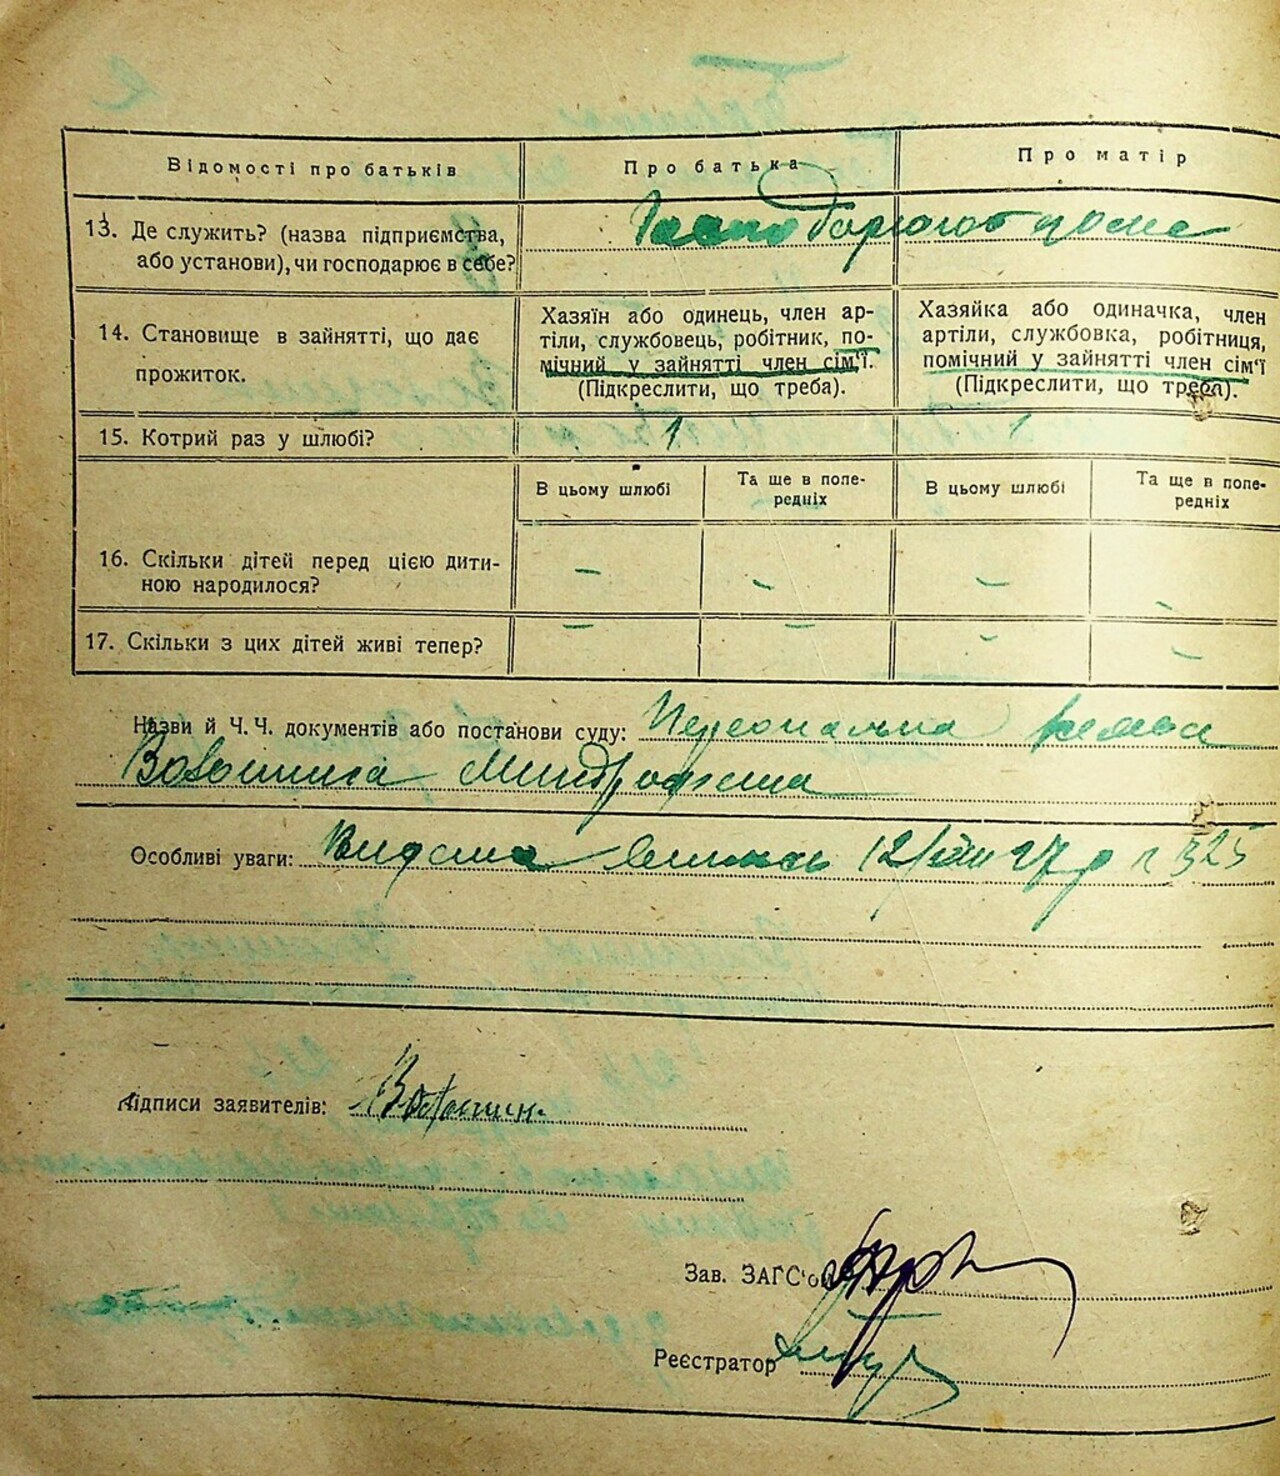 Відомості про батьків
Про батька
Про матір
13. Де служить? (назва підприємства,
або установи), чи господарює в себе?
14. Становище в зайнятті, що дає
прожиток.
Хазяїн або одинець, член ар-
тіли, службовець, робітник, по-
мічний у зайнятті член сім'ї.
(Підкреслити, що треба).
Хазяйка або одиначка, член
артіли, службовка, робітниця,
помічний у зайнятті член сім'ї
(Підкреслити, що треба).
15. Котрий раз у шлюбі?
1
1
В цьому шлюбі
Та ще в попе-
редніх
В цьому шлюбі
Та ще в попе-
редніх
16. Скільки дітей перед цією дити-
ною народилося?
– – – –
17. Скільки з цих дітей живі тепер?
– – – –
Назви й Ч. Ч. документів або постанови суду: Персональна
Волошина
Особливі уваги: Видана 12/VIII 27 р 325
Підписи заявителів: Волошин
Зав. ЗАГС'ом
Реєстратор